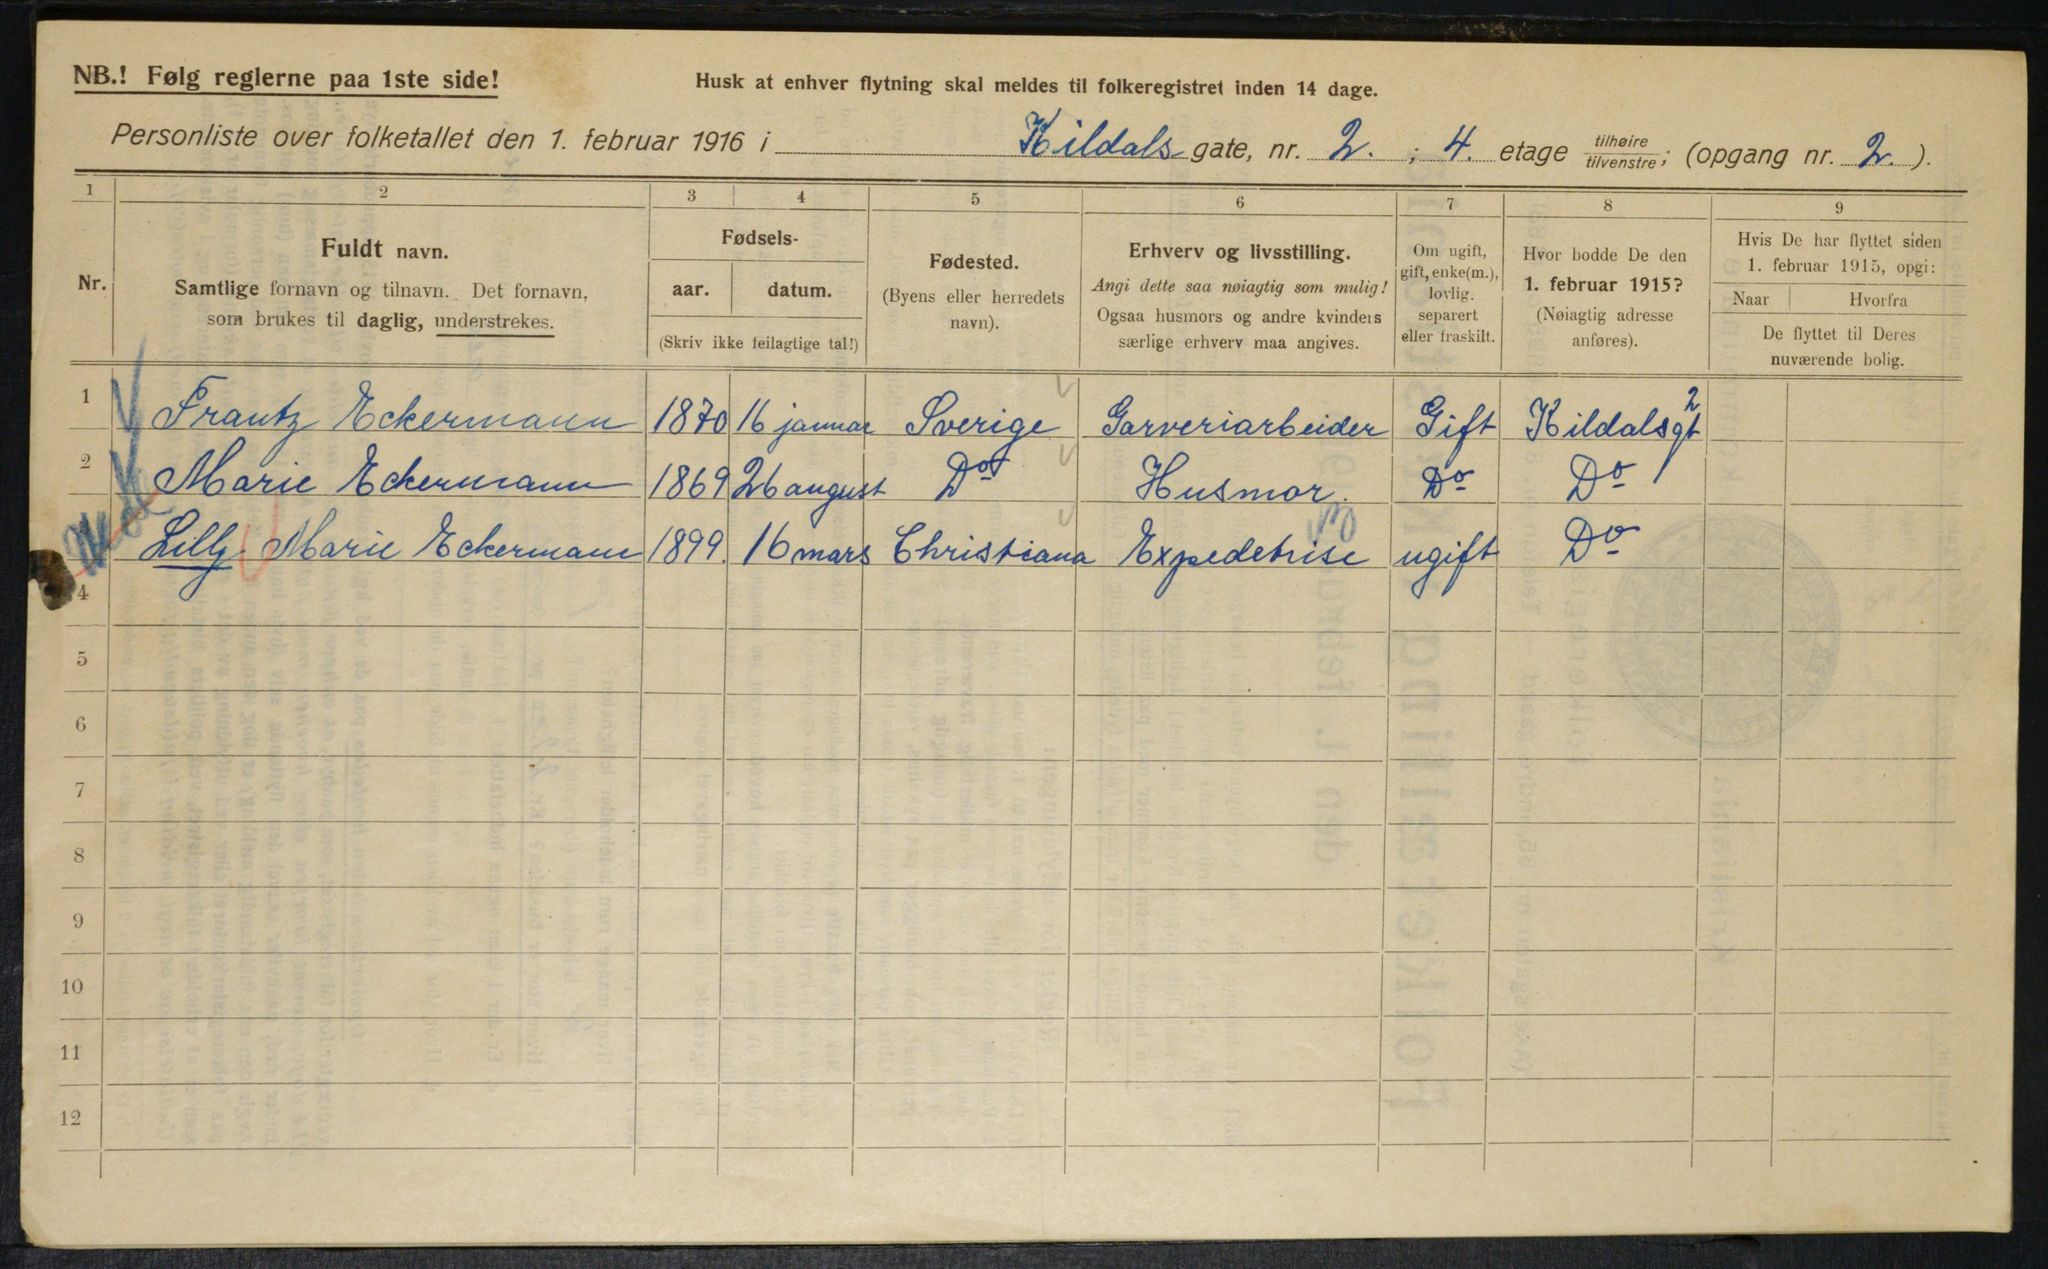 NB.! Følg reglerne paa 1ste side!
Husk at enhver flytning skal meldes til folkeregistret inden 14 dage.
Personliste over folketallet den 1. februar 1916 i Kildals gate, nr. 2. ; 4. etage tilhøire/tilvenstre; (opgang nr. 2. ).
1 2 3 4 5 6 7 8 9
Nr.
Fuldt navn.
Samtlige fornavn og tilnavn. Det fornavn,
som brukes til daglig, understrekes.
Fødsels-
aar. datum.
(Skriv ikke feilagtige tal!)
Fødested.
(Byens eller herredets
navn).
Erhverv og livsstilling.
Angi dette saa nøiagtig som mulig!
Ogsaa husmors og andre kvinders
særlige erhverv maa angives.
Om ugift,
gift, enke(m.),
lovlig.
separert
eller fraskilt.
Hvor bodde De den
1. februar 1915?
(Nøiagtig adresse
anføres).
Hvis De har flyttet siden
1. februar 1915, opgi:
Naar Hvorfra
De flyttet til Deres
nuværende bolig.
1 Frantz Eckermann 1870 16 januar Sverige Garveriarbeider Gift Kildalsgt 2
2 Marie Eckermann 1869 26 august Do Husmor. Do Do
3 Lilly Marie Eckermann 1899. 16 mars Christiana Expedetrise ugift Do
4
5
6
7
8
9
10
11
12